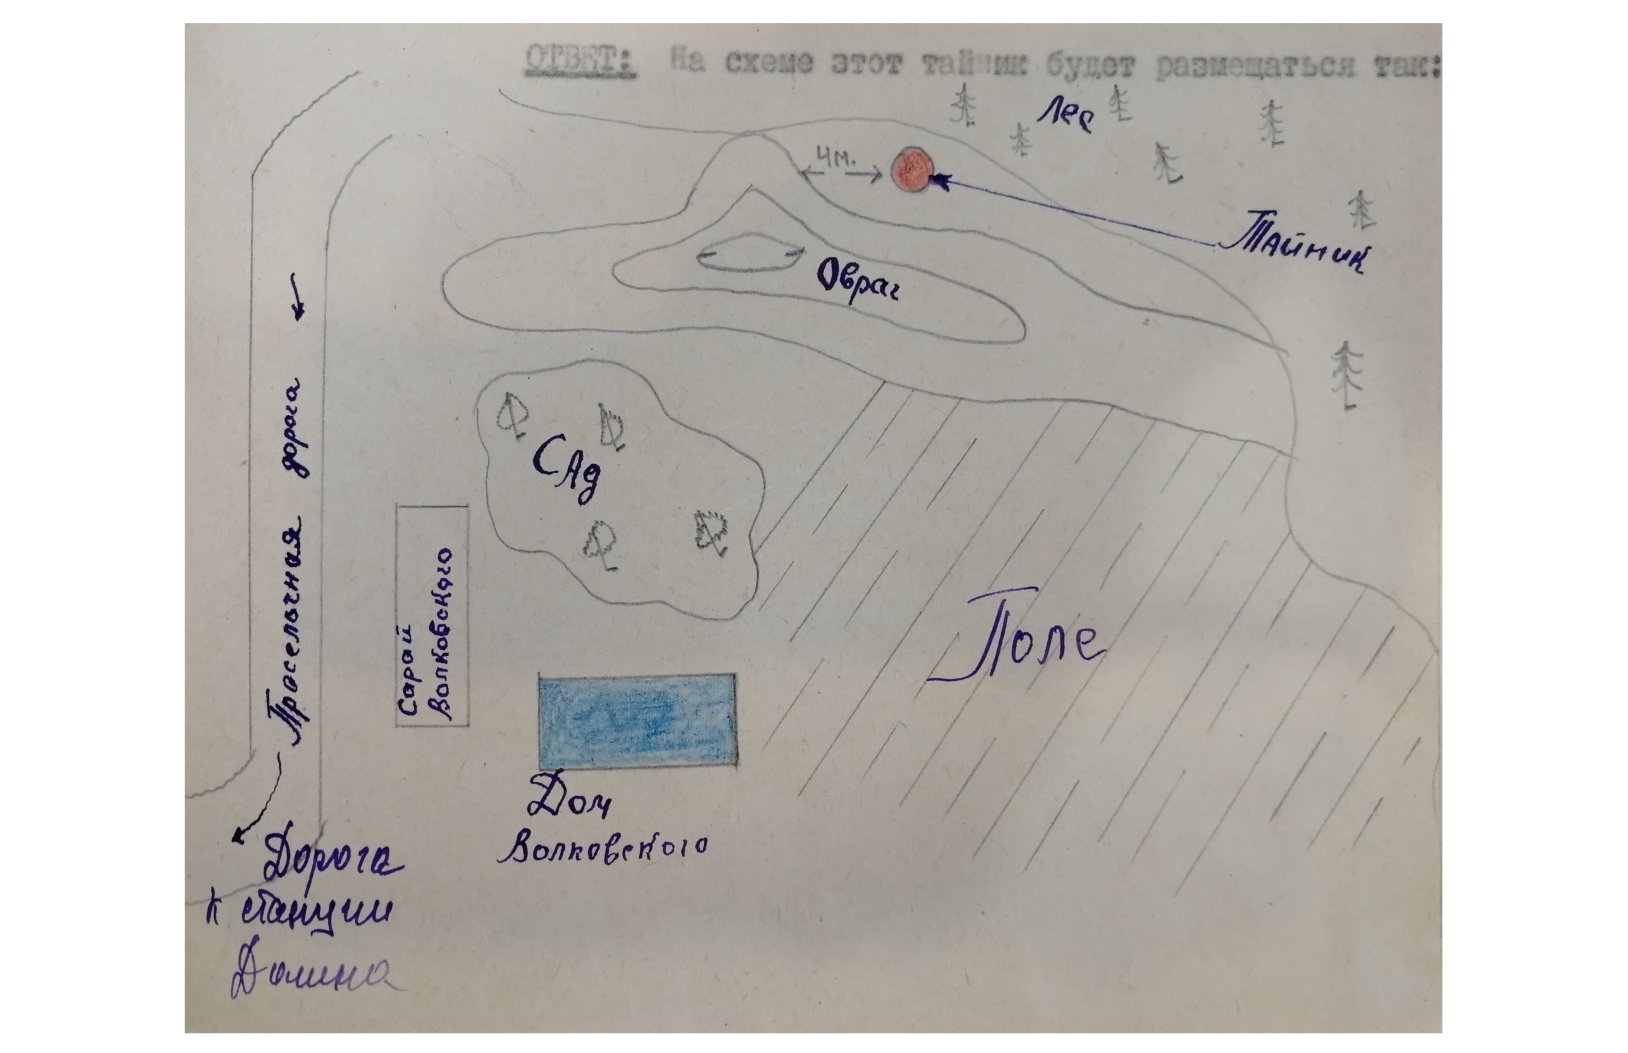 ОТВЕТ: На схеме этот тайник будет размещаться так:
Лес
4м.
Тайник
Овраг
Сад
Просельчная дорога
Сарай
Волковского
Поле
Дом
Волковского
Дорога
к станции
Долина